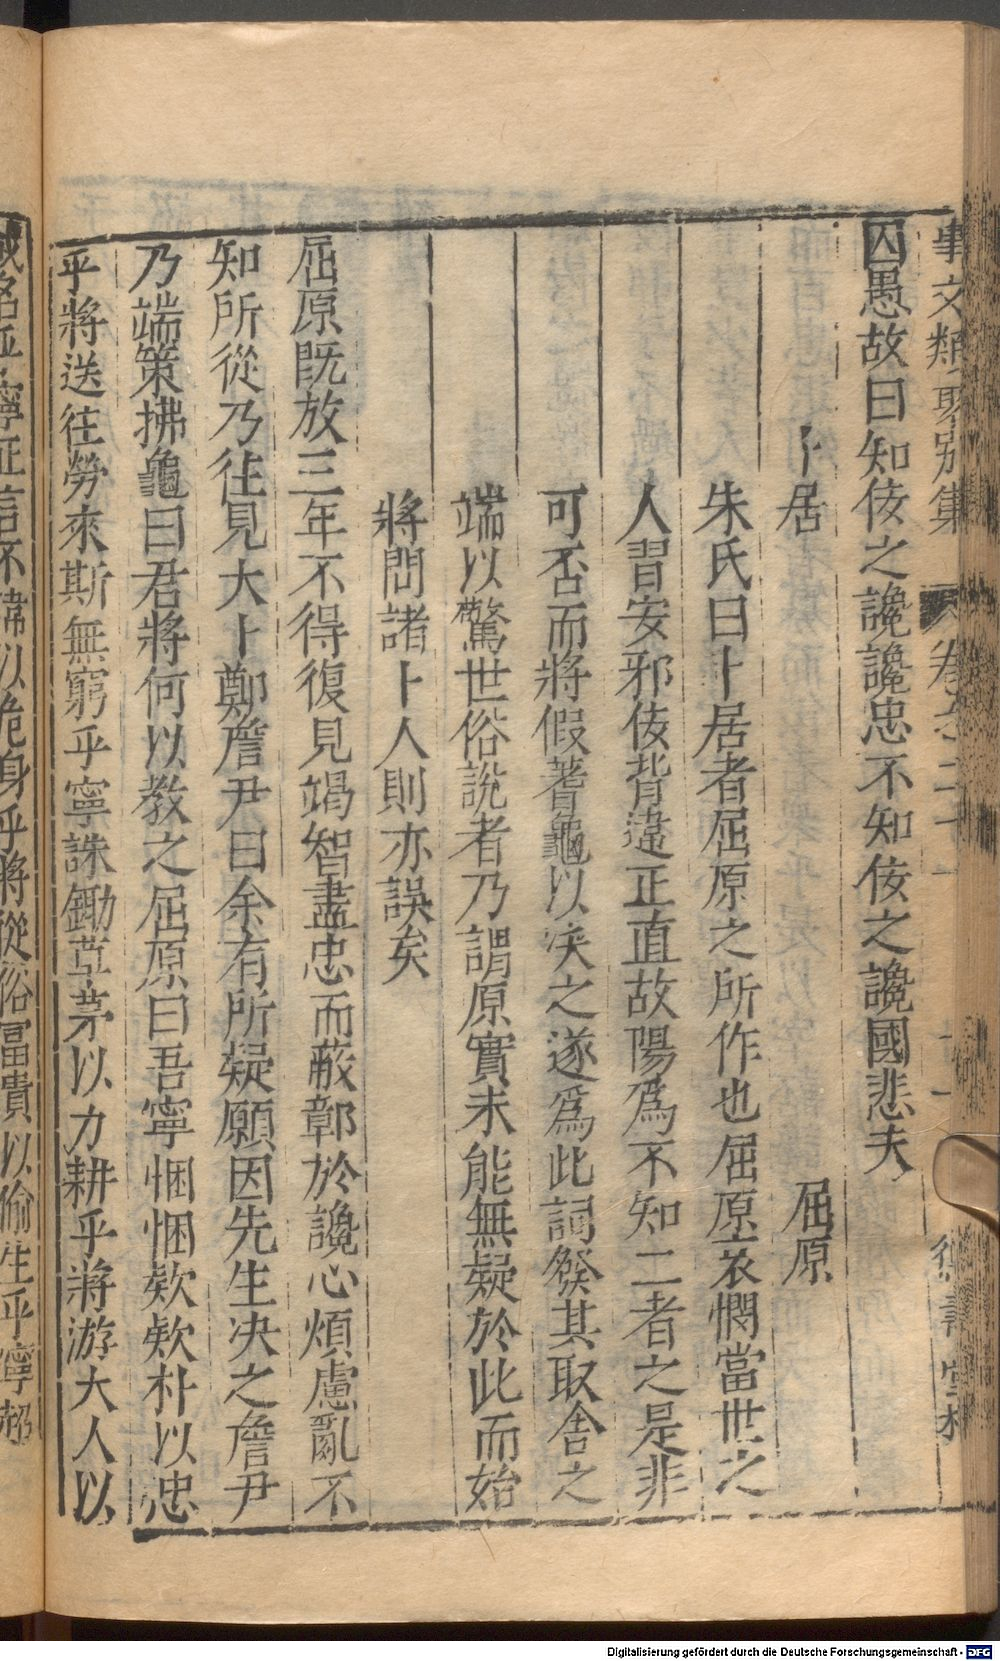 事文類聚別集
囚愚故曰知佞之讒讒忠不知佞之讒國悲夫
卜居 屈原
朱氏曰卜居者屈原之所作也屈原哀憫當世之
人習安邪佞背違正直故陽爲不知二者之是非
可否而將假蓍龜以决之遂爲此詞發其取舍之
端以驚世俗說者乃謂原實未能無疑於此而始
將問諸卜人則亦誤矣
屈原既放三年不得復見竭智盡忠而蔽鄣於讒心煩慮亂不
知所從乃往見大卜鄭詹尹曰余有所疑願因先生决之詹尹
乃端策拂龜曰君將何以教之屈原曰吾寧悃悃欵欵朴以忠
乎將送往勞來斯無窮乎寧誅鋤草茅以力耕乎將游大人以
成名乎寧正言不諱以危身乎將從俗冨貴以偷生乎寧超
Digitalisierung gefördert durch die Deutsche Forschungsgemeinschaft - DFG